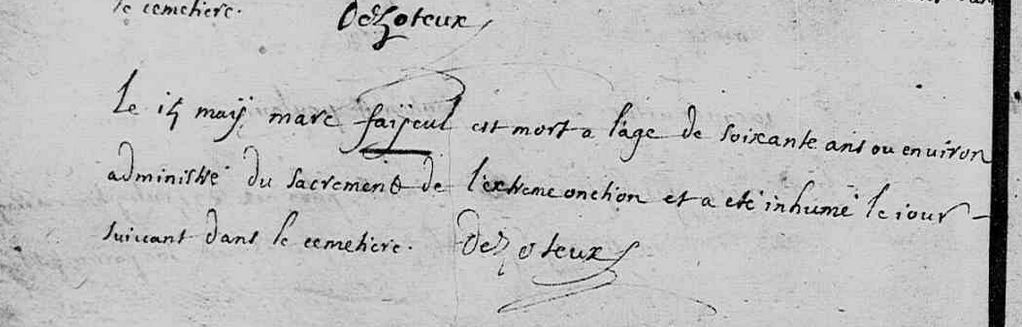 le cemetiere.
Dezoteux
Le 15 maÿ marc faiÿeul est mort a l'age de soixante ans ou environ
administré du sacrement de l'extreme onction et a eté inhumé le iour
suivant dans le cemetiere. Dezoteux